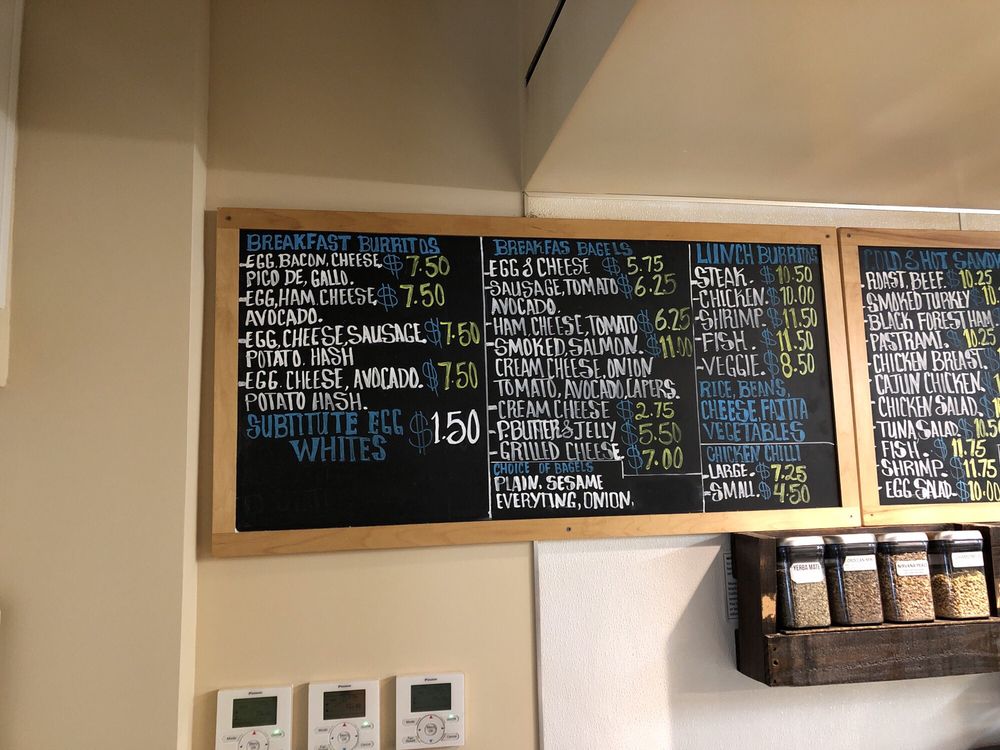 BREAKFAST BURRITOS
-EGG, BACON, CHEESE, $7.50
PICO DE, GALLO.
-EGG, HAM CHEESE, $7.50
AVOCADO.
-EGG, CHEESE, SAUSAGE, $7.50
POTATO. HASH
-EGG. CHEESE, AVOCADO. $7.50
POTATO HASH.
SUBTITUTE EGG $1.50
WHITES
BREAKFAS BAGELS
-EGG & CHEESE $5.75
-SAUSAGE, TOMATO $6.25
AVOCADO.
-HAM, CHEESE, TOMATO $6.25
-SMOKED, SALMON. $11.00
CREAM CHEESE, ONION
TOMATO, AVOCADO, CAPERS.
-CREAM CHEESE $2.75
-P.BUTTER & JELLY $5.50
-GRILLED CHEESE $7.00
CHOICE OF BAGELS
PLAIN, SESAME
EVERYTING, ONION,
LUNCH BURRITOS
-STEAK. $10.50
-CHICKEN. $10.00
-SHRIMP. $11.50
-FISH. $11.50
-VEGGIE. $8.50
RICE, BEANS,
CHEESE FAJITA
VEGETABLES
CHICKEN CHILLI
-LARGE. $7.25
-SMALL. $4.50
COLD & HOT SANDW
-ROAST, BEEF. $10.25
-SMOKED TURKEY $10.
-BLACK FOREST HAM
-PASTRAMI. $10.25
-CHICKEN BREAST.
-CAJUN CHICKEN.
-CHICKEN SALAD.
-TUNA SALAD. $10.50
-FISH. $11.75
-SHRIMP. $11.75
-EGG SALAD. $10.00
YERBA MATE